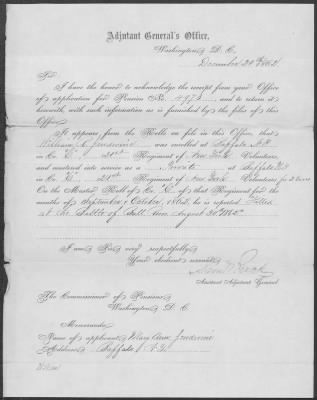 Adjutant General's Office,
Washington, D. C.
December 20th 1862
Sir:
I have the honor to acknowledge the receipt from your Office
of application for Pension No. and to return it
herewith, with such information as is furnished by the files of this
Office.
It appears from the Rolls on file in this Office, that
William was enrolled at Buffalo N.Y.
in Co. 21st Regiment of New York Volunteers,
and mustered into service as a Private at
in Co. 21st Regiment of New York Volunteers for 2 Years
On the Muster Roll of Co. of that Regiment, for the
months of September & October, 1862, he is reported Killed
at the Battle of Bull Run August 30th 1862.
I am, Sir, very respectfully,
Your obedient servant,
Assistant Adjutant General
The Commissioner of Pensions
Washington, D. C.
Memoranda:
Name of applicant, Mary Ann
Address, Buffalo N.Y.